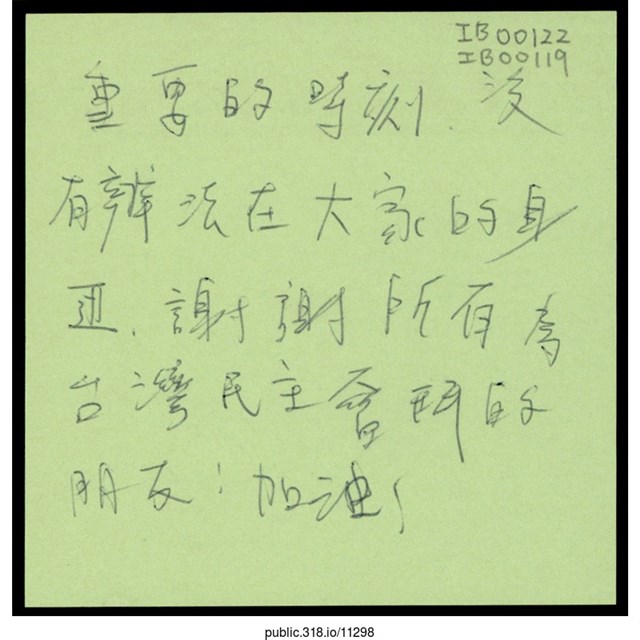 IB00122
IB00119
重要的時刻.沒
有辦法在大家的身
邊.謝謝所有為
台灣民主奮鬥的
朋友!加油!